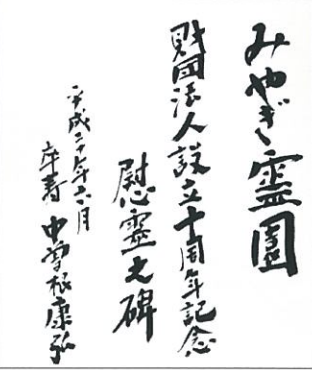 みやぎ霊園
財団法人設立十周年記念
慰霊之碑
平成二十年六月
卒寿 中曽根康弘